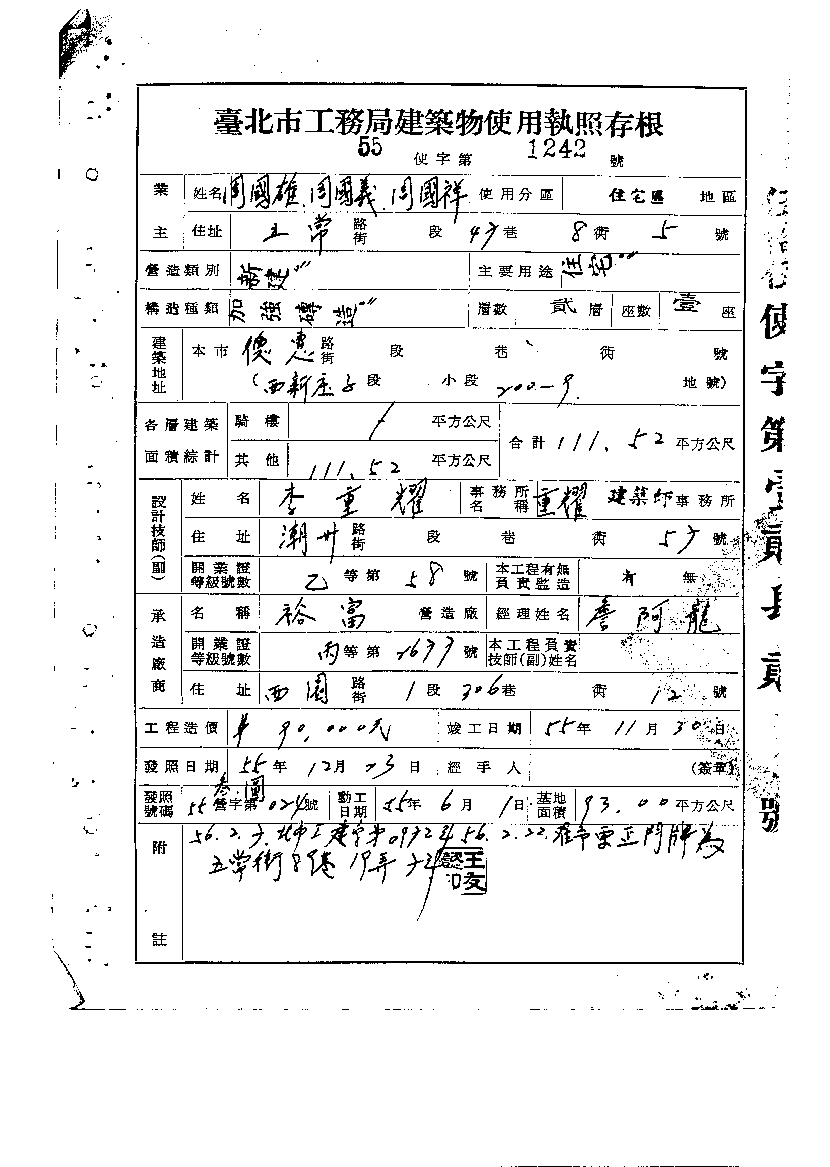 臺北市工務局建築物使用執照存根
55 使字第 1242 號
業主 姓名 周國雄、周國義、周國祥 使用分區 住宅區 地區
住址 五常 路街 段 47巷 8街 5號
營造類別 新建 主要用途 住宅
構造種類 加強磚造 層數 貳層 座數 壹座
建築地址 本市 德惠 路街 段 巷 街 號
(西新庄子段 小段 200-9 地號)
各層建築面積綜計 騎樓 / 平方公尺 合計 111.52 平方公尺
其他 111.52 平方公尺
設計技師(副) 姓名 李重耀 事務所名稱 重耀建築師事務所
住址 潮州 路街 段 巷 街 57號
開業證等級號數 乙等第58號 本工程有無負責監造 有 無
承造廠商 名稱 裕富 營造廠 經理姓名 詹阿龍
開業證等級號數 丙等第2677號 本工程負責技師(副)姓名
住址 西園 路街 1段 306巷 街 12號
工程造價 90,000元 竣工日期 55年11月30日
發照日期 55年12月23日 經手人 (簽章)
發照號碼 55營字第024號 動工日期 55年6月1日 基地面積 93.00平方公尺
附註
五常街
使字第壹貳 貳 號